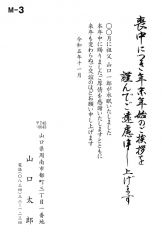 M-3
喪中につき年末年始のご挨拶を
謹んでご遠慮申し上げます
〇〇月に祖父 山口一郎が永眠いたしました
本年中に賜りましたご厚情を感謝いたしますとともに
来年も変わらぬご交誼のほどお願い申し上げます
令和五年十一月
山口県周南市都町三丁目一番地
山口太郎